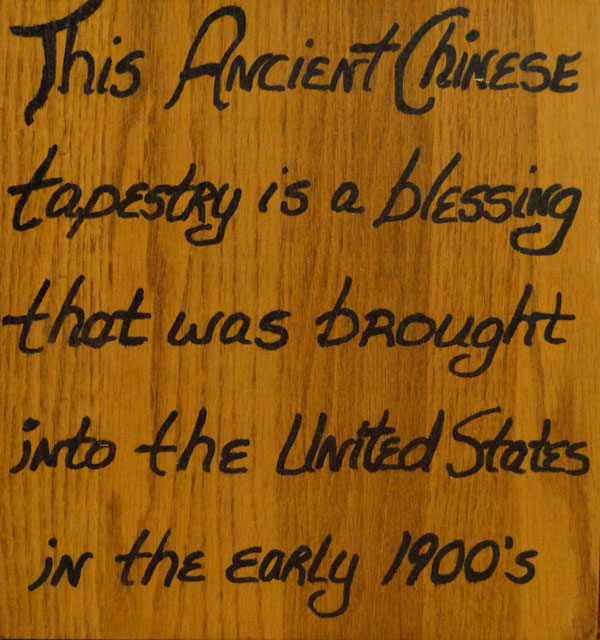 This Ancient Chinese
tapestry is a blessing
that was brought
into the United States
in the early 1900's